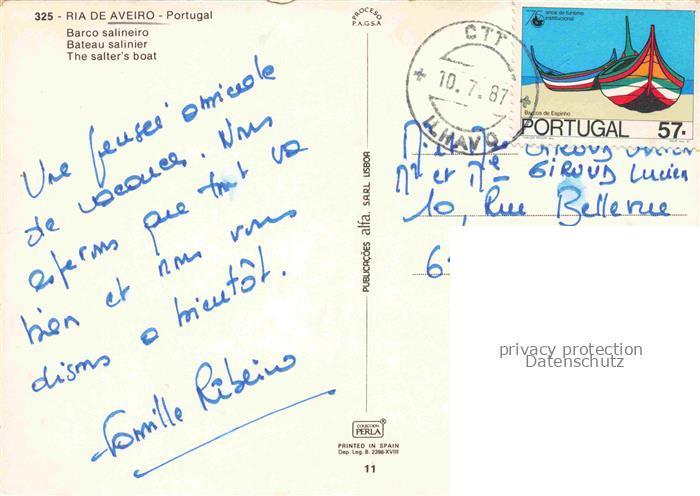 325 - RIA DE AVEIRO - Portugal
Barco salineiro
Bateau salinier
The salter's boat
Une pensée amicale
de vacances. Nous
espérons que tout va
bien et nous vous
disons a bientôt.
Famille Ribeiro
PROCESO
P.A.G.S.A.
PUBLICAÇÕES alfa. S.A.R.L. LISBOR
COLECCION
PERLA
PRINTED IN SPAIN
Dep. Leg. B. 2398-XVIII
11
CTT
10.7.87
ILHAVO
75 anos de turismo
institucional
Barcos de Espinho
PORTUGAL 57.
Mr et Mme GIROUD Lucien
10, Rue Bellevue
6
privacy protection
Datenschutz